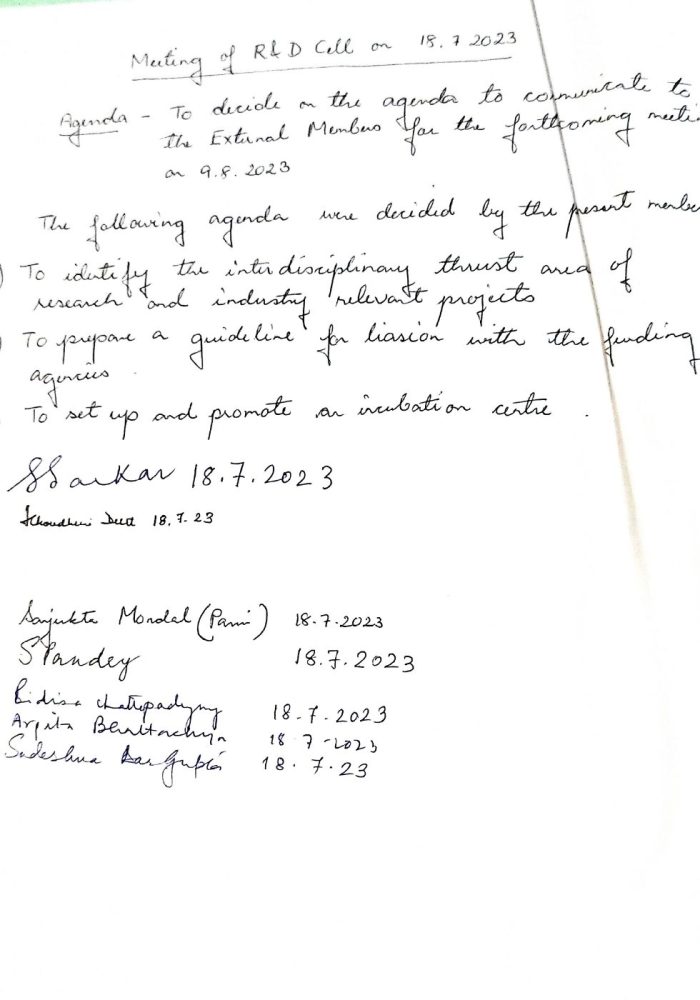 Meeting of R&D Cell on 18.7 2023
Agenda - To decide on the agenda to comunicate to
the External Members for the forthcoming meeti
on 9.8.2023
The following agenda were decided by the present membe
) To identify the interdisciplinary thrust area of
research and industry relevant projects
) To prepare a guideline for liasion with the funding
agencies .
To set up and promote an incubation centre .
SSarkar 18.7.2023
18.7.23
Sanjukta Mondal (Parui) 18.7.2023
SPandey 18.7.2023
Bidisa Chattopadhyay 18.7.2023
Arpita Bhattacharya 18 7-2023
Sudeshna DasGupta 18.7.23